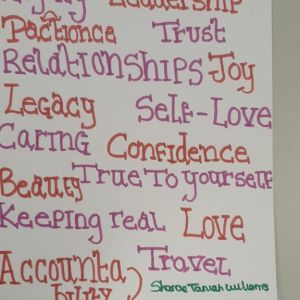 Leadership
Pactionce Trust
Relationships Joy
Legacy Self-Love
Caring Confidence
Beauty True To yourself
Keeping real Love
Accounta Travel
bility